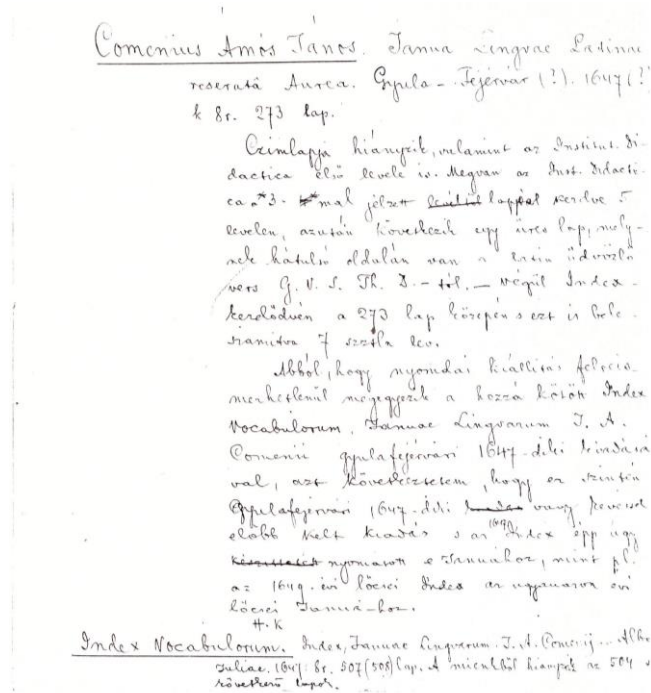 Comenius Ámós János. Janua Lingvae Latinae
reserata Aurea. Gyula-Fejérvár (?). 1647 (?
k 8r. 273 lap.
Czimlapja hiányzik, valamint az Institut. Di-
dactica első levele is. Megvan az Inst. Didacti-
ca *3. mal jelzett lappal kezdve 5
levelen, azután következik egy üres lap, mely-
nek hátulsó oldalán van a üdvözlő
vers G. V. S. Th. D. - től. — végül Index
kezdődvén a 273 lap közepén s ezt is bele-
számitva 7 sztln lev.
Abból, hogy nyomdai kiállitás felis-
merhetlenül megegyezik a hozzá kötött Index
Vocabulorum. Januae Lingvarum J. A.
Comenii gyulafejérvári 1647-diki kiadásá
val, azt következtetem, hogy ez szintén
Gyulafejérvári 1647-diki vagy kevéssel
előbb kelt kiadás s az Index épp úgy
nyomatott e Januához, mint pl.
az 1649. évi lőcsei Index az ugyanazon évi
lőcsei Januá-hoz.
H. K
Index Vocabulorum. Index, Januae Lingvarum. J. A. Comenij... Alb
Juliae, 1647. 8r. 507 (508) lap. A mienkből hiányzik az 504 s
következő lapok.